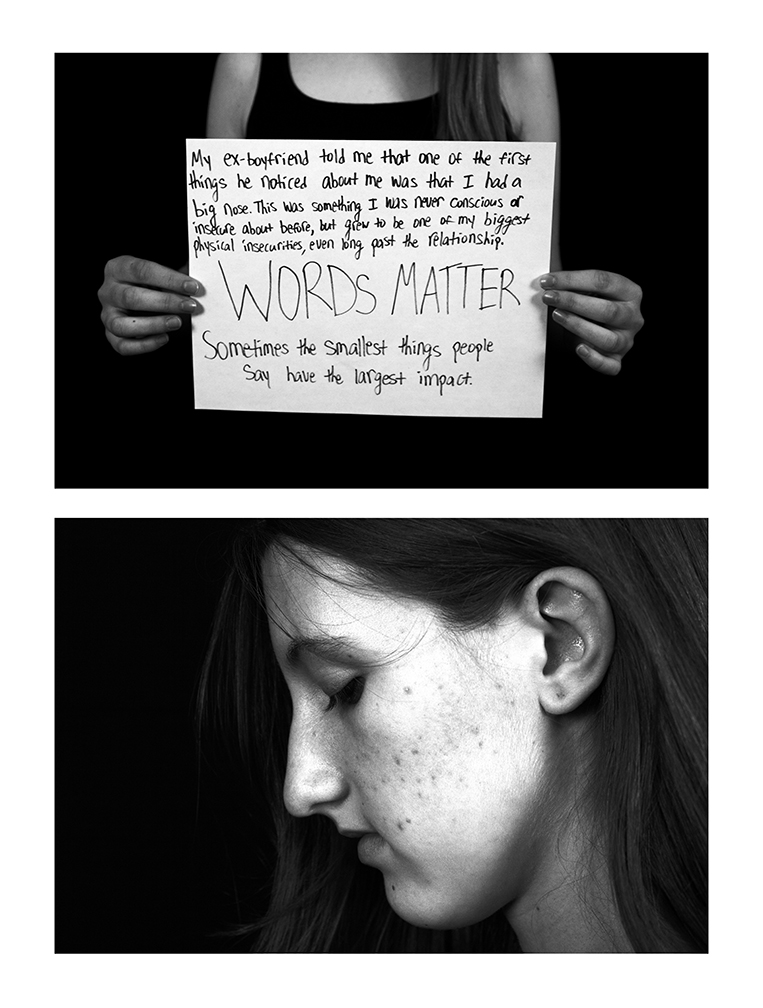 My ex-boyfriend told me that one of the first
things he noticed about me was that I had a
big nose. This was something I was never conscious or
insecure about before, but grew to be one of my biggest
physical insecurities, even long past the relationship.
WORDS MATTER
Sometimes the smallest things people
Say have the largest impact.